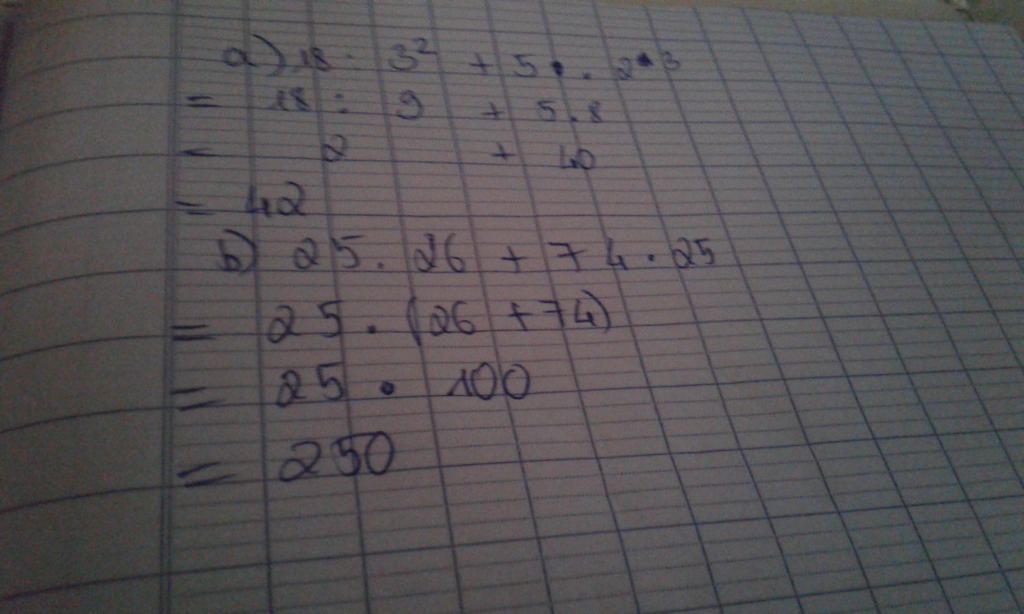 a) 18 : 3² + 5 . 2^3
= 18 : 9 + 5.8
= 2 + 40
= 42
b) 25 . 26 + 74 . 25
= 25 . (26 + 74)
= 25 . 100
= 250